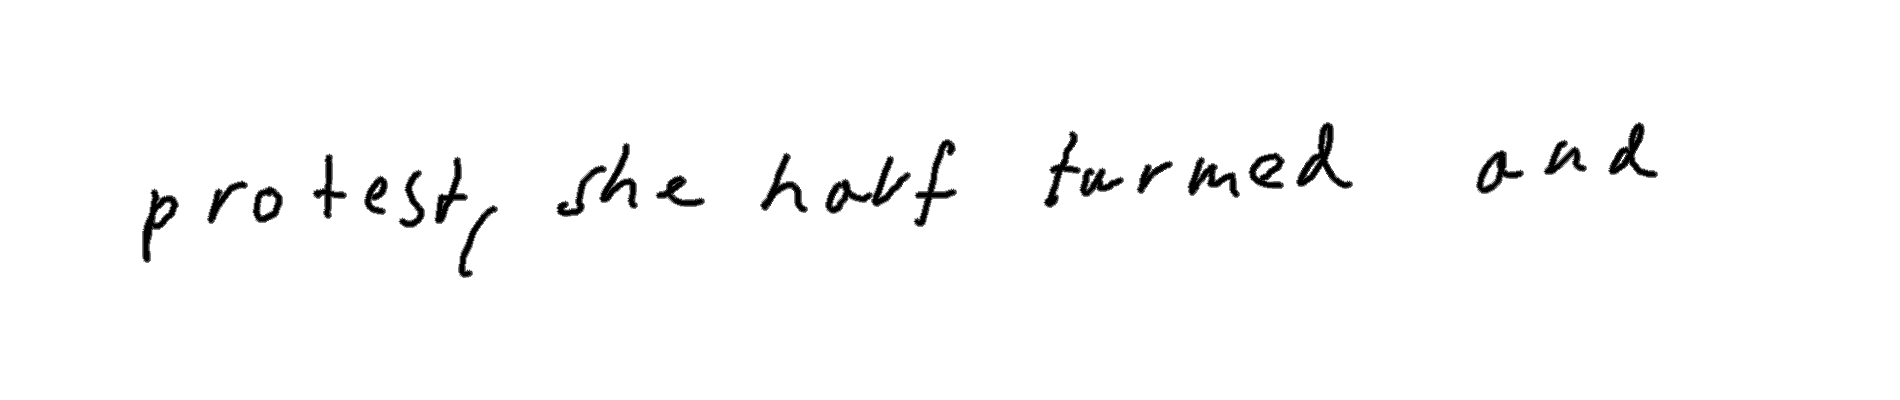 protest, she half turned and